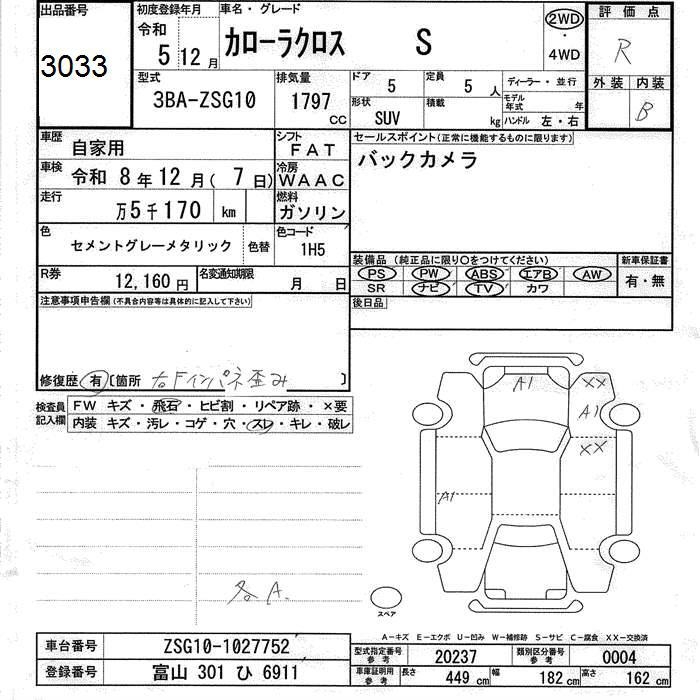 出品番号 初度登録年月 車名・グレード 評価点
3033 令和 5 12月 カローラクロス S 2WD ・ 4WD R
外装 内装 B
型式 3BA-ZSG10 排気量 1797 CC
ドア 5 定員 5 人 ディーラー・並行
形状 SUV 積載 kg モデル年式 年 ハンドル 左・右
車歴 自家用 シフト FAT
セールスポイント(正常に機能するものに限ります)
バックカメラ
車検 令和 8年12月( 7日) 冷房 WAAC
走行 万5千170 km 燃料 ガソリン
色 セメントグレーメタリック 色替 色コード 1H5
装備品 (純正品に限り○をつけてください) 新車保証書
PS PW ABS エアB AW 有・無
SR ナビ TV カワ
R券 12,160円 名変通知期限 月 日
後日品
注意事項申告欄(不具合内容等は具体的に記入して下さい)
修復歴 有 〔箇所 右Fインパネ歪み 〕
検査員記入欄 FW キズ・飛石・ヒビ割・リペア跡・×要
内装 キズ・汚レ・コゲ・穴・スレ・キレ・破レ
A1 XX
A1
XX
A1
各A.
スペア
A-キズ E-エクボ U-凹み W-補修跡 S-サビ C-腐食 XX-交換済
車台番号 ZSG10-1027752
型式指定番号 参考 20237 類別区分番号 参考 0004
登録番号 富山 301 ひ 6911
車庫証明用 参考 長さ 449 cm 幅 182 cm 高さ 162 cm